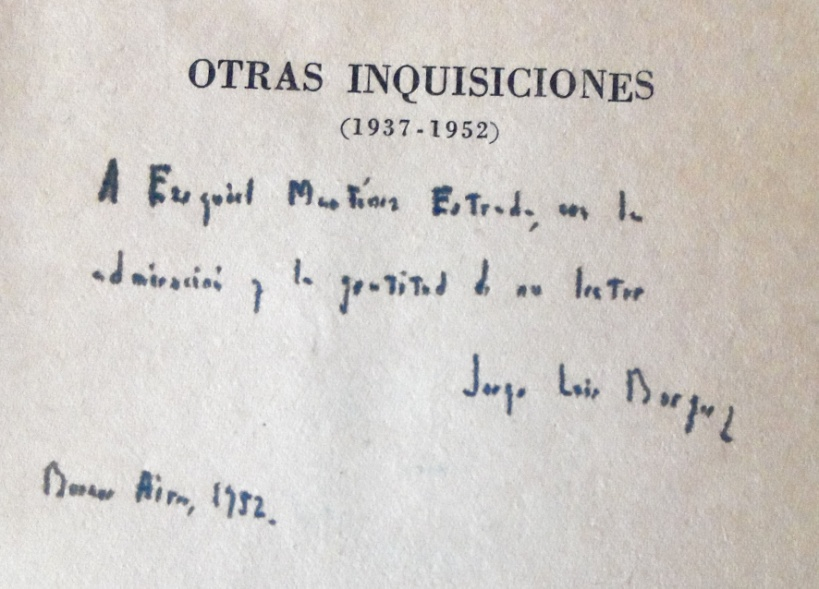 OTRAS INQUISICIONES
(1937-1952)
A Ezequiel Martínez Estrada, con la
admiración y la gratitud de su lector
Jorge Luis Borges
Buenos Aires, 1952.